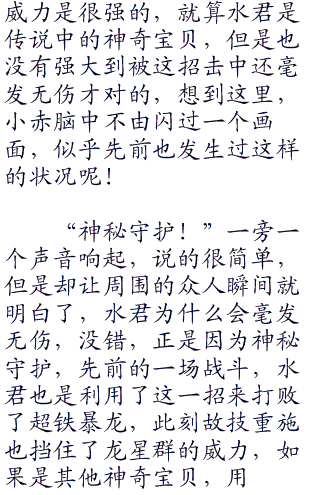 威力是很强的，就算水君是
传说中的神奇宝贝，但是也
没有强大到被这招击中还毫
发无伤才对的，想到这里，
小赤脑中不由闪过一个画
面，似乎先前也发生过这样
的状况呢！
“神秘守护！”一旁一
个声音响起，说的很简单，
但是却让周围的众人瞬间就
明白了，水君为什么会毫发
无伤，没错，正是因为神秘
守护，先前的一场战斗，水
君也是利用了这一招来打败
了超铁暴龙，此刻故技重施
也挡住了龙星群的威力，如
果是其他神奇宝贝，用